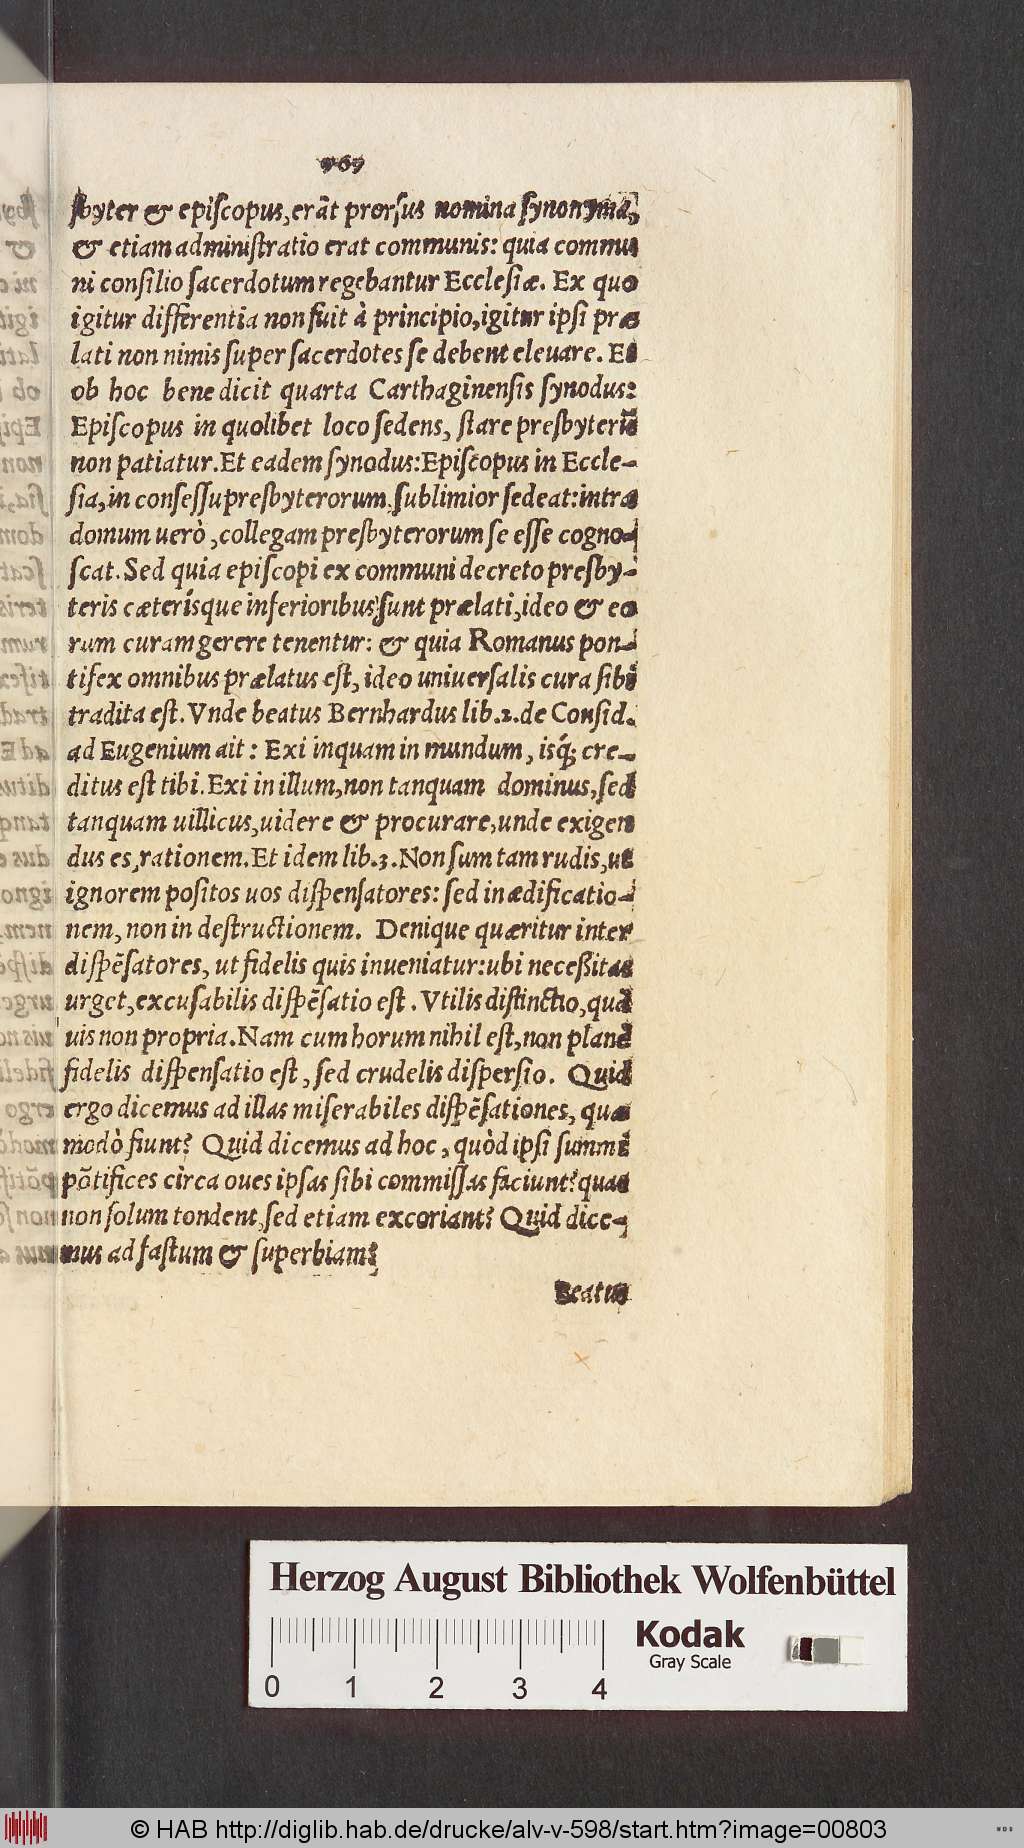 769
sbyter & episcopus, erãt prorsus nomina synonyma,
& etiam administratio erat communis: quia commu
ni consilio sacerdotum regebantur Ecclesiæ. Ex quo
igitur differentia non fuit à principio, igitur ipsi præ
lati non nimis super sacerdotes se debent eleuare. Et
ob hoc bene dicit quarta Carthaginensis synodus:
Episcopus in quolibet loco sedens, stare presbyterũ
non patiatur. Et eadem synodus: Episcopus in Eccle-
sia, in consessu presbyterorum sublimior sedeat: intra
domum uerò, collegam presbyterorum se esse cogno-
scat. Sed quia episcopi ex communi decreto presby-
teris cæterísque inferioribus sunt prælati, ideo & eo
rum curam gerere tenentur: & quia Romanus pon-
tifex omnibus prælatus est, ideo uniuersalis cura sibi
tradita est. Vnde beatus Bernhardus lib. 2. de Consid.
ad Eugenium ait: Exi inquam in mundum, isq́; cre-
ditus est tibi. Exi in illum, non tanquam dominus, sed
tanquam uillicus, uidere & procurare, unde exigen
dus es, rationem. Et idem lib. 3. Non sum tam rudis, ut
ignorem positos uos dispensatores: sed in ædificatio-
nem, non in destructionem. Denique quæritur inter
dispẽsatores, ut fidelis quis inueniatur: ubi neceßitas
urget, excusabilis dispẽsatio est. Vtilis distinctio, quã
uis non propria. Nam cum horum nihil est, non planè
fidelis dispensatio est, sed crudelis dispersio. Quid
ergo dicemus ad illas miserabiles dispẽsationes, quæ
modò fiunt? Quid dicemus ad hoc, quòd ipsi summi
põtifices circa oues ipsas sibi commissas faciunt? quas
non solum tondent, sed etiam excoriant? Quid dice-
mus ad fastum & superbiam?
Beatus
Herzog August Bibliothek Wolfenbüttel
Kodak
Gray Scale
0 1 2 3 4
© HAB http://diglib.hab.de/drucke/alv-v-598/start.htm?image=00803